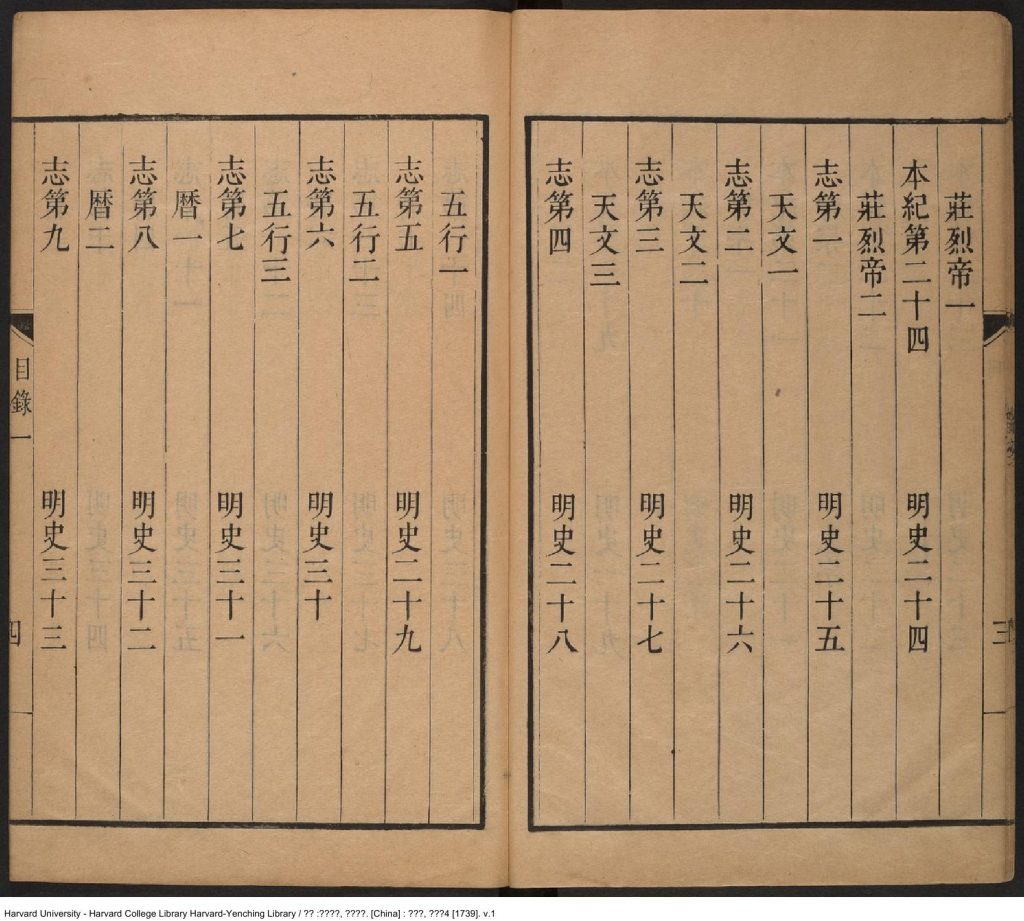 莊烈帝一
本紀第二十四 明史二十四
莊烈帝二
志第一 明史二十五
天文一
志第二 明史二十六
天文二
志第三 明史二十七
天文三
志第四 明史二十八
三
五行一
志第五 明史二十九
五行二
志第六 明史三十
五行三
志第七 明史三十一
曆一
志第八 明史三十二
曆二
志第九 明史三十三
目錄一
四
Harvard University - Harvard College Library Harvard-Yenching Library / ?? :????, ????. [China] : ???, ???4 [1739]. v.1